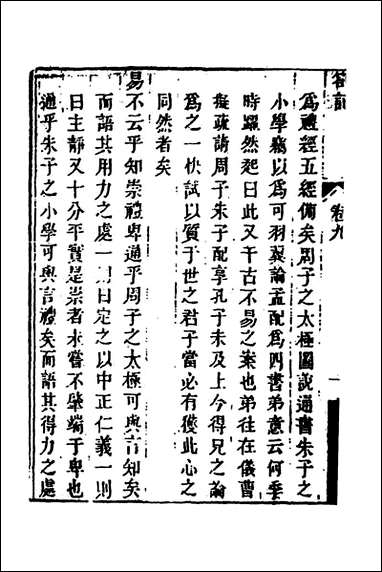 劄記
卷九
一
為禮經五經備矣周子之太極圖說通書朱子之
小學竊以為可羽翼論孟配為四書弟意云何季
時躍然起曰此又千古不易之案也弟往在儀曹
擬疏請周子朱子配享孔子未及上今得兄之論
為之一快試以質于世之君子當必有獲此心之
同然者矣
易不云乎知崇禮卑通乎周子之太極可與言知矣
而語其用力之處一則曰定之以中正仁義一則
曰主靜又十分平實是崇者未嘗不肇端于卑也
通乎朱子之小學可與言禮矣而語其得力之處